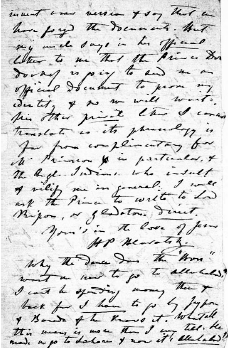 invent some version & say that we
have forged the documents. But
my uncle says in his official
letter to me that the Prince Don
doukof is going to send me an
official document to prove my
identity, & so we will wait.
His other private letter I cannot
translate as its phraseology is
far from complimentary for
Mr Primrose in particular, &
the Anglo-Indians who insult
& vilify me in general. I will
ask the Prince to write to Lord
Ripon, or Gladstone direct.
Yours in the love of Jesus
HP Blavatsky
Why the does the "Boss"
want me to go to Allahabad?
I can't be spending money there &
back for I have to go by Jeypur
& Baroda & he knows it. What all
this means is more than I can tell. He
made me go to Lahore & now it's Allahabad!!